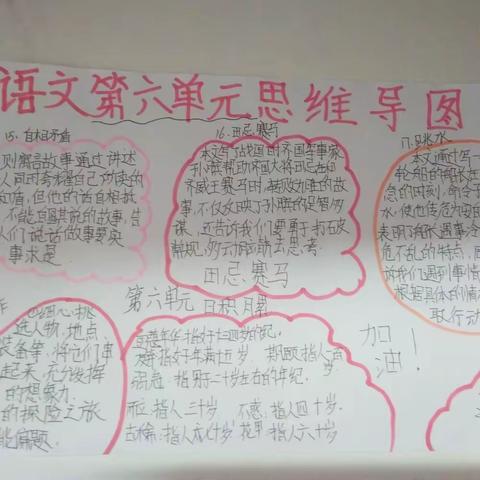 语文第六单元思维导图
15.自相矛盾
则寓言故事通过讲述
人同时夸耀自己功使的
的盾,但他的话自相抵
不能自圆其说的故事,告
人们说话做事要实
事求是
16.田忌赛马
本文写战国时齐国军事家
孙膑帮助齐国大将田忌在和
齐威王赛马时,转败为胜的故
事,不仅反映了孙膑的足智多
谋,还告诉我们要勇于打破
常规,
田忌赛马
17.跳水
本文通过写一
轮船的船长在
急的时刻,命令
水,使他转危为安的
表明了船长遇事冷
危不乱的特点,同
诉我们遇到事情
根据具体的情
取行动
第六单元 日积月累
加油!
细心,挑
选人物,地点
装备等,将它们串
起来,充分发挥
的想象力
的探险之旅
能偏题.
豆蔻年华:指女子十三四岁的年纪.
弱冠:指男子二十岁左右的年纪.
而立:指人三十岁 不惑:指人四十岁.
古稀:指人七十岁 花甲:指人六十岁